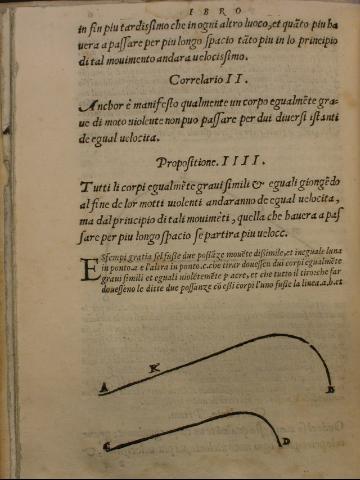 IBRO
in fin piu tardissimo che in ogni altro luoco, et quãto piu ha
uera a passare per piu longo spacio tãto piu in lo principio
di tal mouimento andara uelocissimo.
Correlario II.
Anchor è manifesto qualmente un corpo egualmẽte gra-
ue di moto uiolente non puo passare per dui diuersi istanti
de egual uelocita.
Propositione. IIII.
Tutti li corpi egualmẽte graui simili & eguali giongẽdo
al fine de lor motti uiolenti andaranno de egual uelocita,
ma dal principio di tali mouimẽti, quella che hauera a pas
sare per piu longo spacio se partira piu ueloce.
ESsempi gratia sel fusse due possãze mouẽte disimile, et ineguale luna
in ponto.a e l'altra in ponto.c. che tirar douessen dui corpi egualmẽte
graui simili et eguali uiolẽtemẽte p aere, et che tutto il tiro che far
douesseno le ditte due possanze cõ essi corpi l'uno fusse la linea.a.b. et
K
A
B
C
D